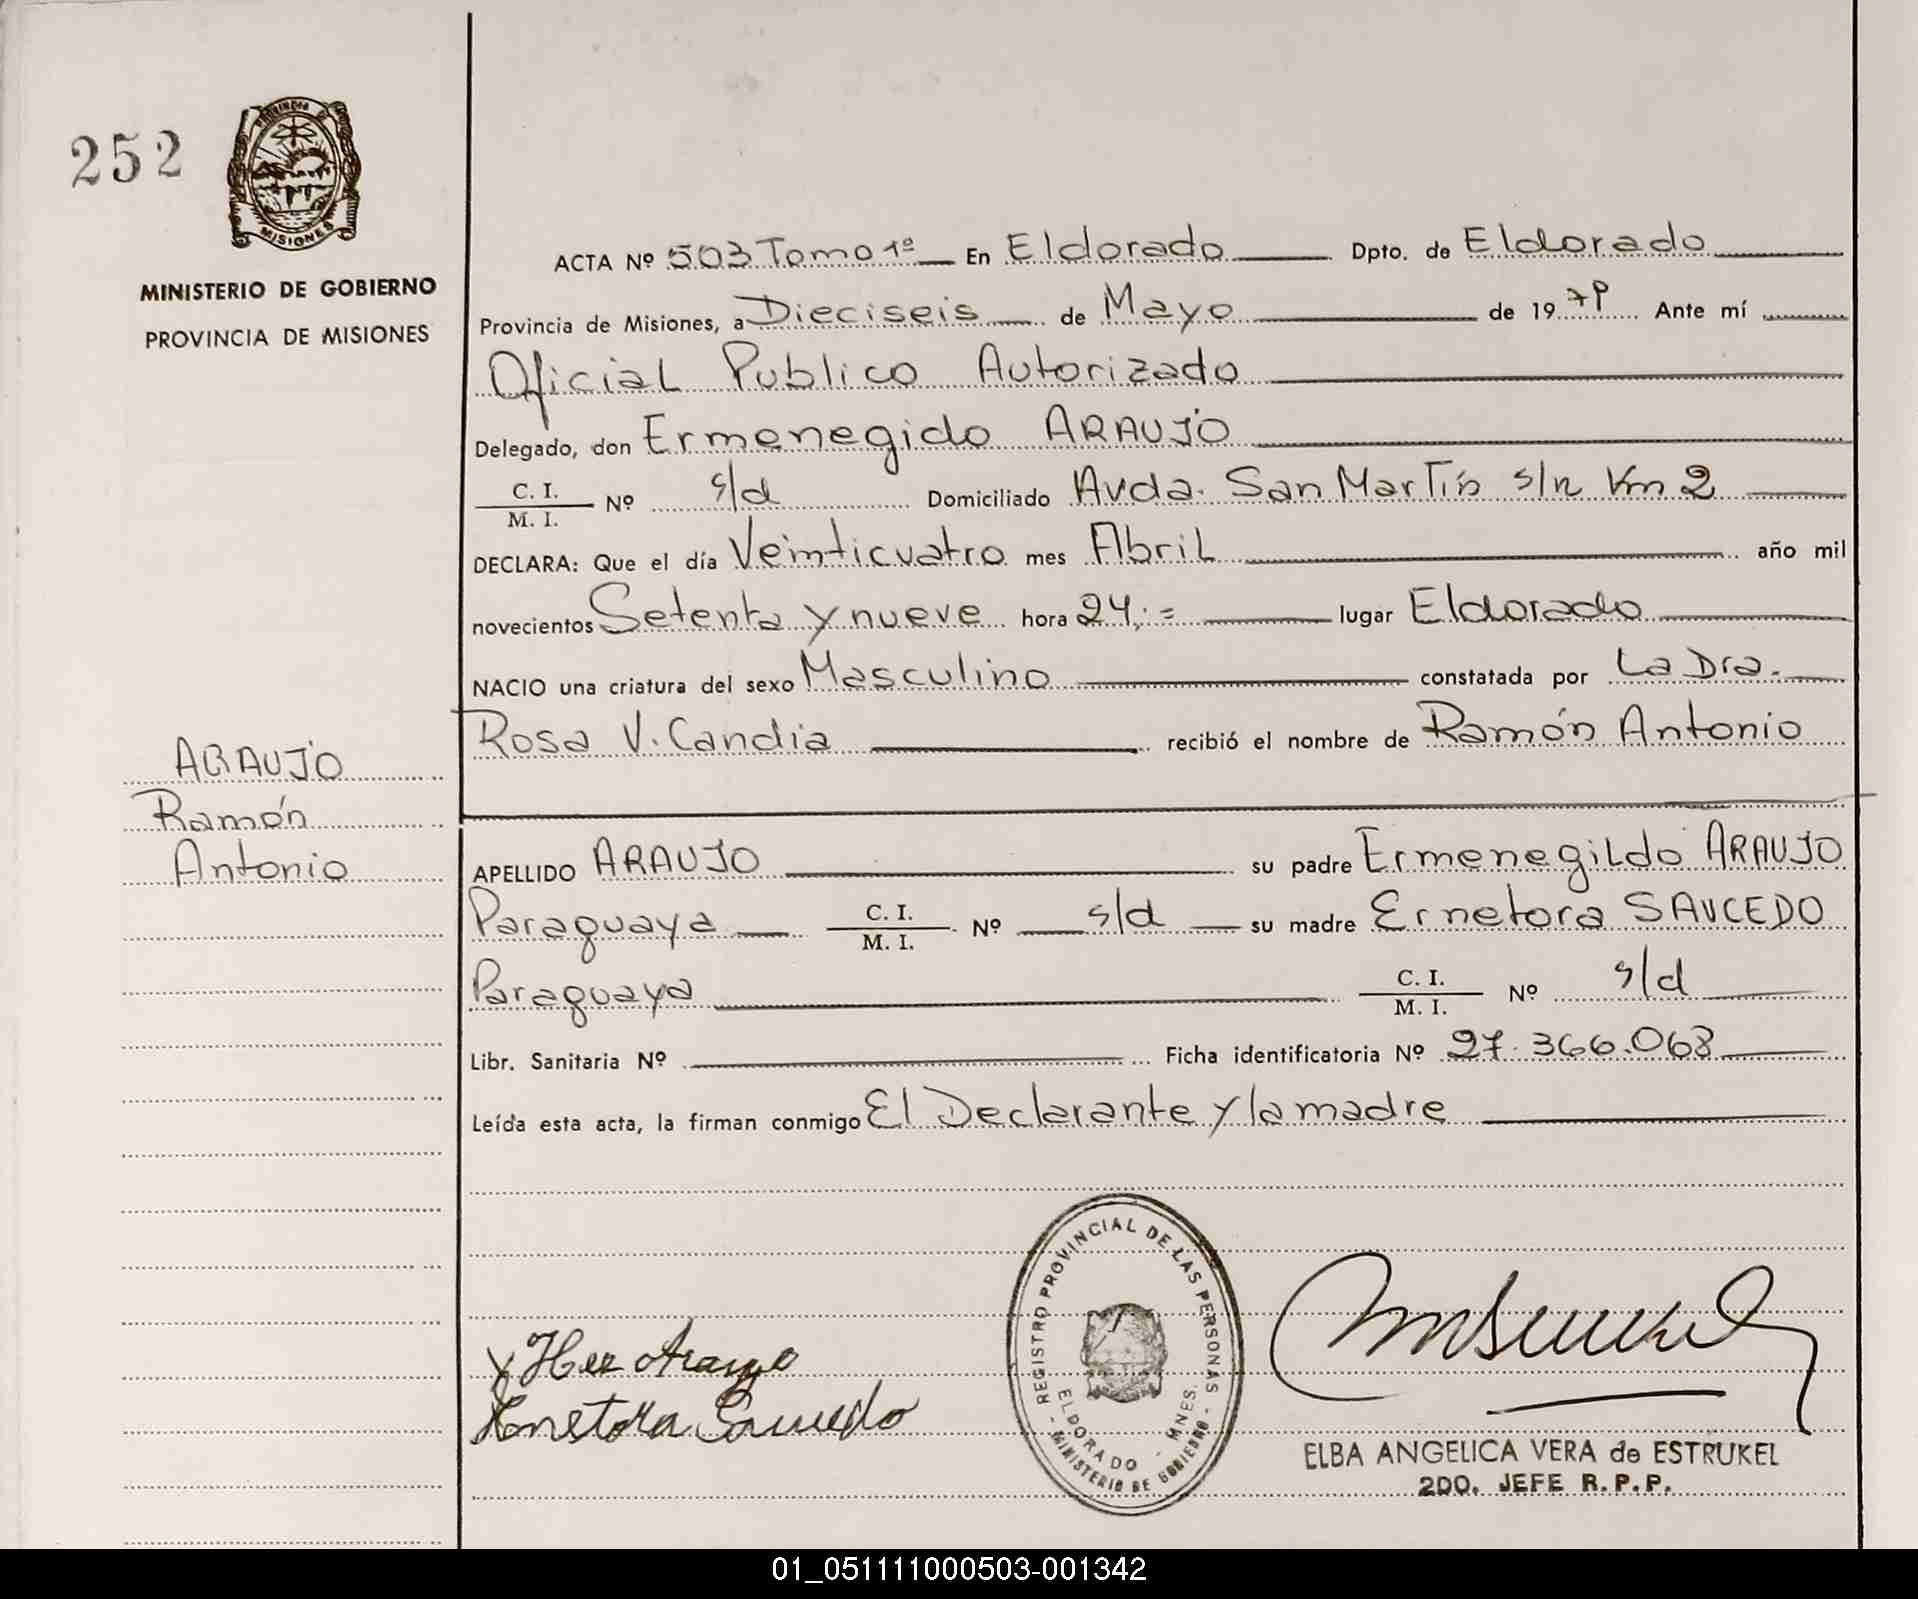 252
PROVINCIA DE
MISIONES
MINISTERIO DE GOBIERNO
PROVINCIA DE MISIONES
ACTA Nº 503 Tomo 1º En Eldorado Dpto. de Eldorado
Provincia de Misiones, a Dieciseis de Mayo de 1979 Ante mí
Oficial Publico Autorizado
Delegado, don Ermenegido ARAUJO
C. I.
M. I. Nº s/d Domiciliado Avda. San Martín s/n Km 2
DECLARA: Que el día Veinticuatro mes Abril año mil
novecientos Setenta y nueve hora 24,= lugar Eldorado
NACIO una criatura del sexo Masculino constatada por La Dra.
Rosa V. Candia recibió el nombre de Ramón Antonio
ARAUJO
Ramón
Antonio
APELLIDO ARAUJO su padre Ermenegildo ARAUJO
Paraguaya C. I.
M. I. Nº s/d su madre Ernetora SAUCEDO
Paraguaya C. I.
M. I. Nº s/d
Libr. Sanitaria Nº Ficha identificatoria Nº 27.366.068
Leída esta acta, la firman conmigo El Declarante y la madre
REGISTRO PROVINCIAL DE LAS PERSONAS
ELDORADO - MNES.
- MINISTERIO DE GOBIERNO -
Araujo
Ernetora Saucedo
ELBA ANGELICA VERA de ESTRUKEL
2DO. JEFE R.P.P.
01_051111000503-001342